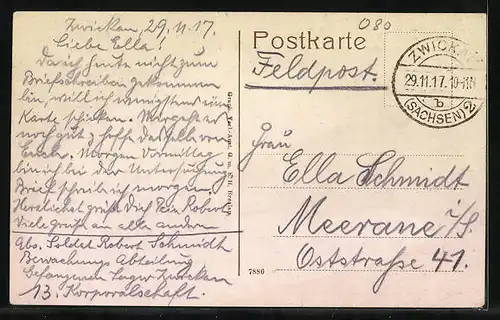 Zwickau, 29.11.17.
Liebe Ella!
Da ich heute nicht zum
Briefschreiben gekommen
bin, will ich wenigstens eine
Karte schicken. Mir geht es
noch gut, hoffe dasselbe von
Euch. Morgen Vormittag
bin ich bei der Untersuchung
Brief schreib ich morgen.
Herzlichst grüßt Dich Dein Robert
Viele Grüße an alle andern
Abs. Soldat Robert Schmidt
Bewachungs Abteilung
Gefangenen Lager Zwickau
13. Korporalschaft.
080
Postkarte
Feldpost.
ZWICKAU
29.11.17. 10-11V
b
(SACHSEN) 2
Frau
Ella Schmidt
Meerane i/S.
Oststraße 41.
7880